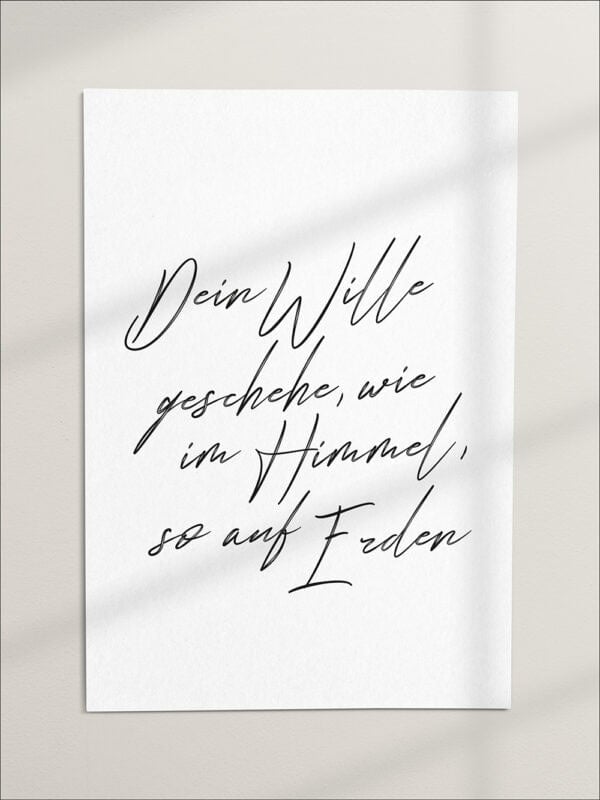 Dein Wille
geschehe, wie
im Himmel,
so auf Erden